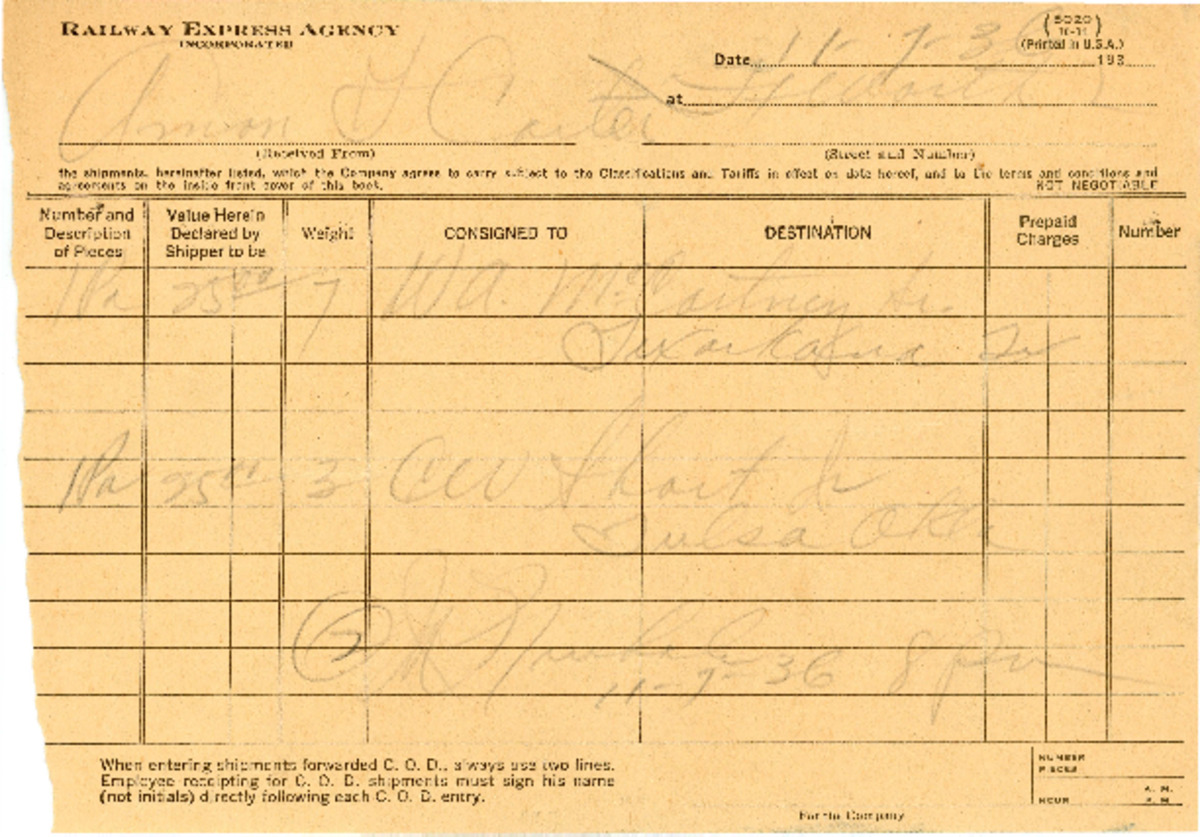 RAILWAY EXPRESS AGENCY
INCORPORATED
(5020)
(Printed in U.S.A.)
Date 11-7-36 193
at Ft Worth
Amon G Carter
(Received From) (Street and Number)
the shipments, hereinafter listed, which the Company agrees to carry subject to the Classifications and Tariffs in effect on date hereof, and to the terms and conditions and
agreements on the inside front cover of this book. NOT NEGOTIABLE
Number and Description of Pieces Value Herein Declared by Shipper to be Weight CONSIGNED TO DESTINATION Prepaid Charges Number
1 Pa 25 00 7 W.A. McCartney Jr.
Texarkana Tex
1 Pa 25 3 CW Short Jr
Tulsa Okla
2
11-7-36 8 Pm
When entering shipments forwarded C. O. D., always use two lines.
Employee receipting for C. O. D. shipments must sign his name
(not initials) directly following each C. O. D. entry.
NUMBER
PIECES
HOUR A. M.
P. M.
For the Company